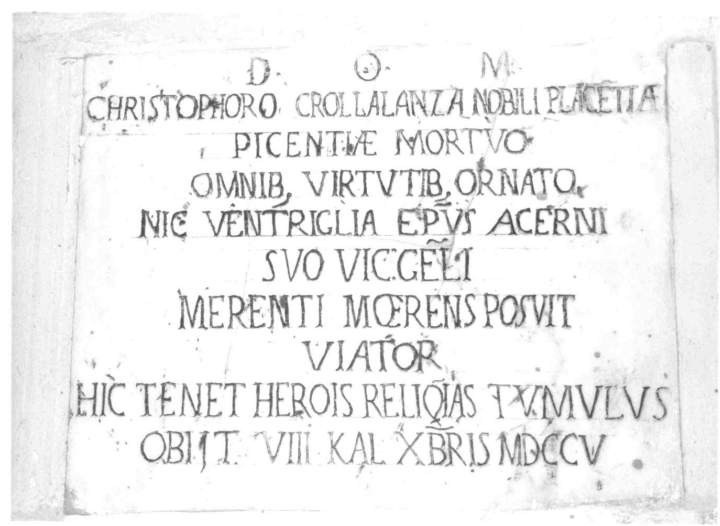 D. O. M.
CHRISTOPHORO CROLLALANZA NOBILI PLACĒTIÆ
PICENTIÆ MORTVO
OMNIB. VIRTVTIB. ORNATO.
NIC VENTRIGLIA EP̃VS ACERNI
SVO VIC.GEÑLI
MERENTI MŒRENS POSVIT
VIATOR
HIC TENET HEROIS RELIQ̃IAS TVMVLVS
OBIJT VIII KAL XB̃RIS MDCCV